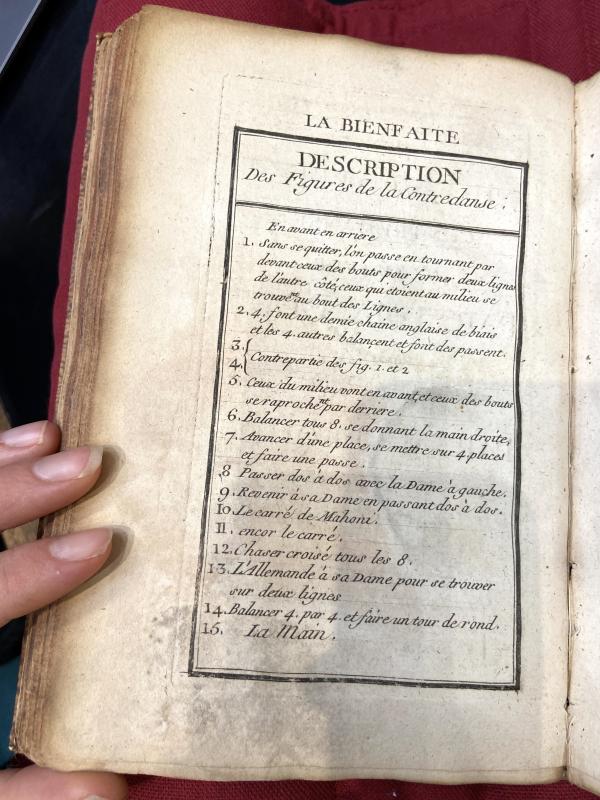 LA BIENFAITE
DESCRIPTION
Des Figures de la Contredanse :
En avant en arriere
1. Sans se quitter, l'on passe en tournant par
devant ceux des bouts pour former deux lignes
de l'autre côté, ceux qui étoient au milieu se
trouve.nt au bout des Lignes.
2. 4. font une demie chaine anglaise de biais
et les 4. autres balancent et font des passent.
3.
4. { Contrepartie des fig. 1. et 2
5. Ceux du milieu vont en avant, et ceux des bouts
se raproche.nt par derriere.
6. Balancer tous 8. se donnant la main droite,
7. Avancer d'une place, se mettre sur 4. places
et faire une passe.
8 Passer dos à dos avec la Dame à gauche.
9. Revenir à sa Dame en passant dos à dos.
10. Le carré de Mahoni.
11. encor le carré.
12. Chaser croisé tous les 8.
13. L'Allemande à sa Dame pour se trouver
sur deux lignes
14. Balancer 4. par 4. et faire un tour de rond.
15. La Main.